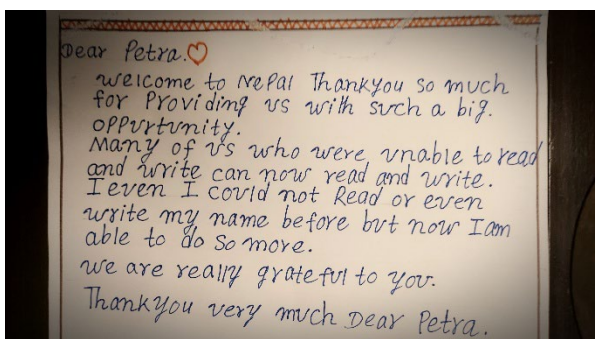 Dear Petra.♡
welcome to Nepal Thankyou so much
for Providing us with such a big.
oppurtunity.
Many of us who were unable to read
and write can now read and write.
I even I could not Read or even
write my name before but now I am
able to do so more.
we are really grateful to you.
Thankyou very much Dear Petra.